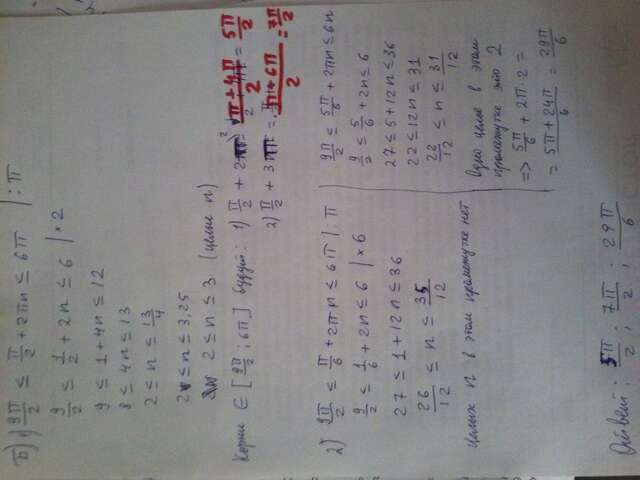 Б) 1) 9π/2 ≤ π/2 + 2πn ≤ 6π | : π
9/2 ≤ 1/2 + 2n ≤ 6 | × 2
9 ≤ 1 + 4n ≤ 12
8 ≤ 4n ≤ 13
2 ≤ n ≤ 13/4
2 ≤ n ≤ 3,25
2 ≤ n ≤ 3 (целые n)
Корни ∈ [9π/2 ; 6π] будут: 1) π/2 + 2 = (π + 4π)/2 = 5π/2
2) π/2 + 3 = (π + 6π)/2 = 7π/2
2) 9π/2 ≤ π/6 + 2πn ≤ 6π | : π
9/2 ≤ 1/6 + 2n ≤ 6 | × 6
27 ≤ 1 + 12n ≤ 36
26/12 ≤ n ≤ 35/12
Целых n в этом промежутке нет
9π/2 ≤ 5π/6 + 2πn ≤ 6π
9/2 ≤ 5/6 + 2n ≤ 6
27 ≤ 5 + 12n ≤ 36
22 ≤ 12n ≤ 31
22/12 ≤ n ≤ 31/12
Одно целое в этом
промежутке это 2
=> 5π/6 + 2π·2 =
= (5π + 24π)/6 = 29π/6
Ответ: 5π/2 ; 7π/2 ; 29π/6